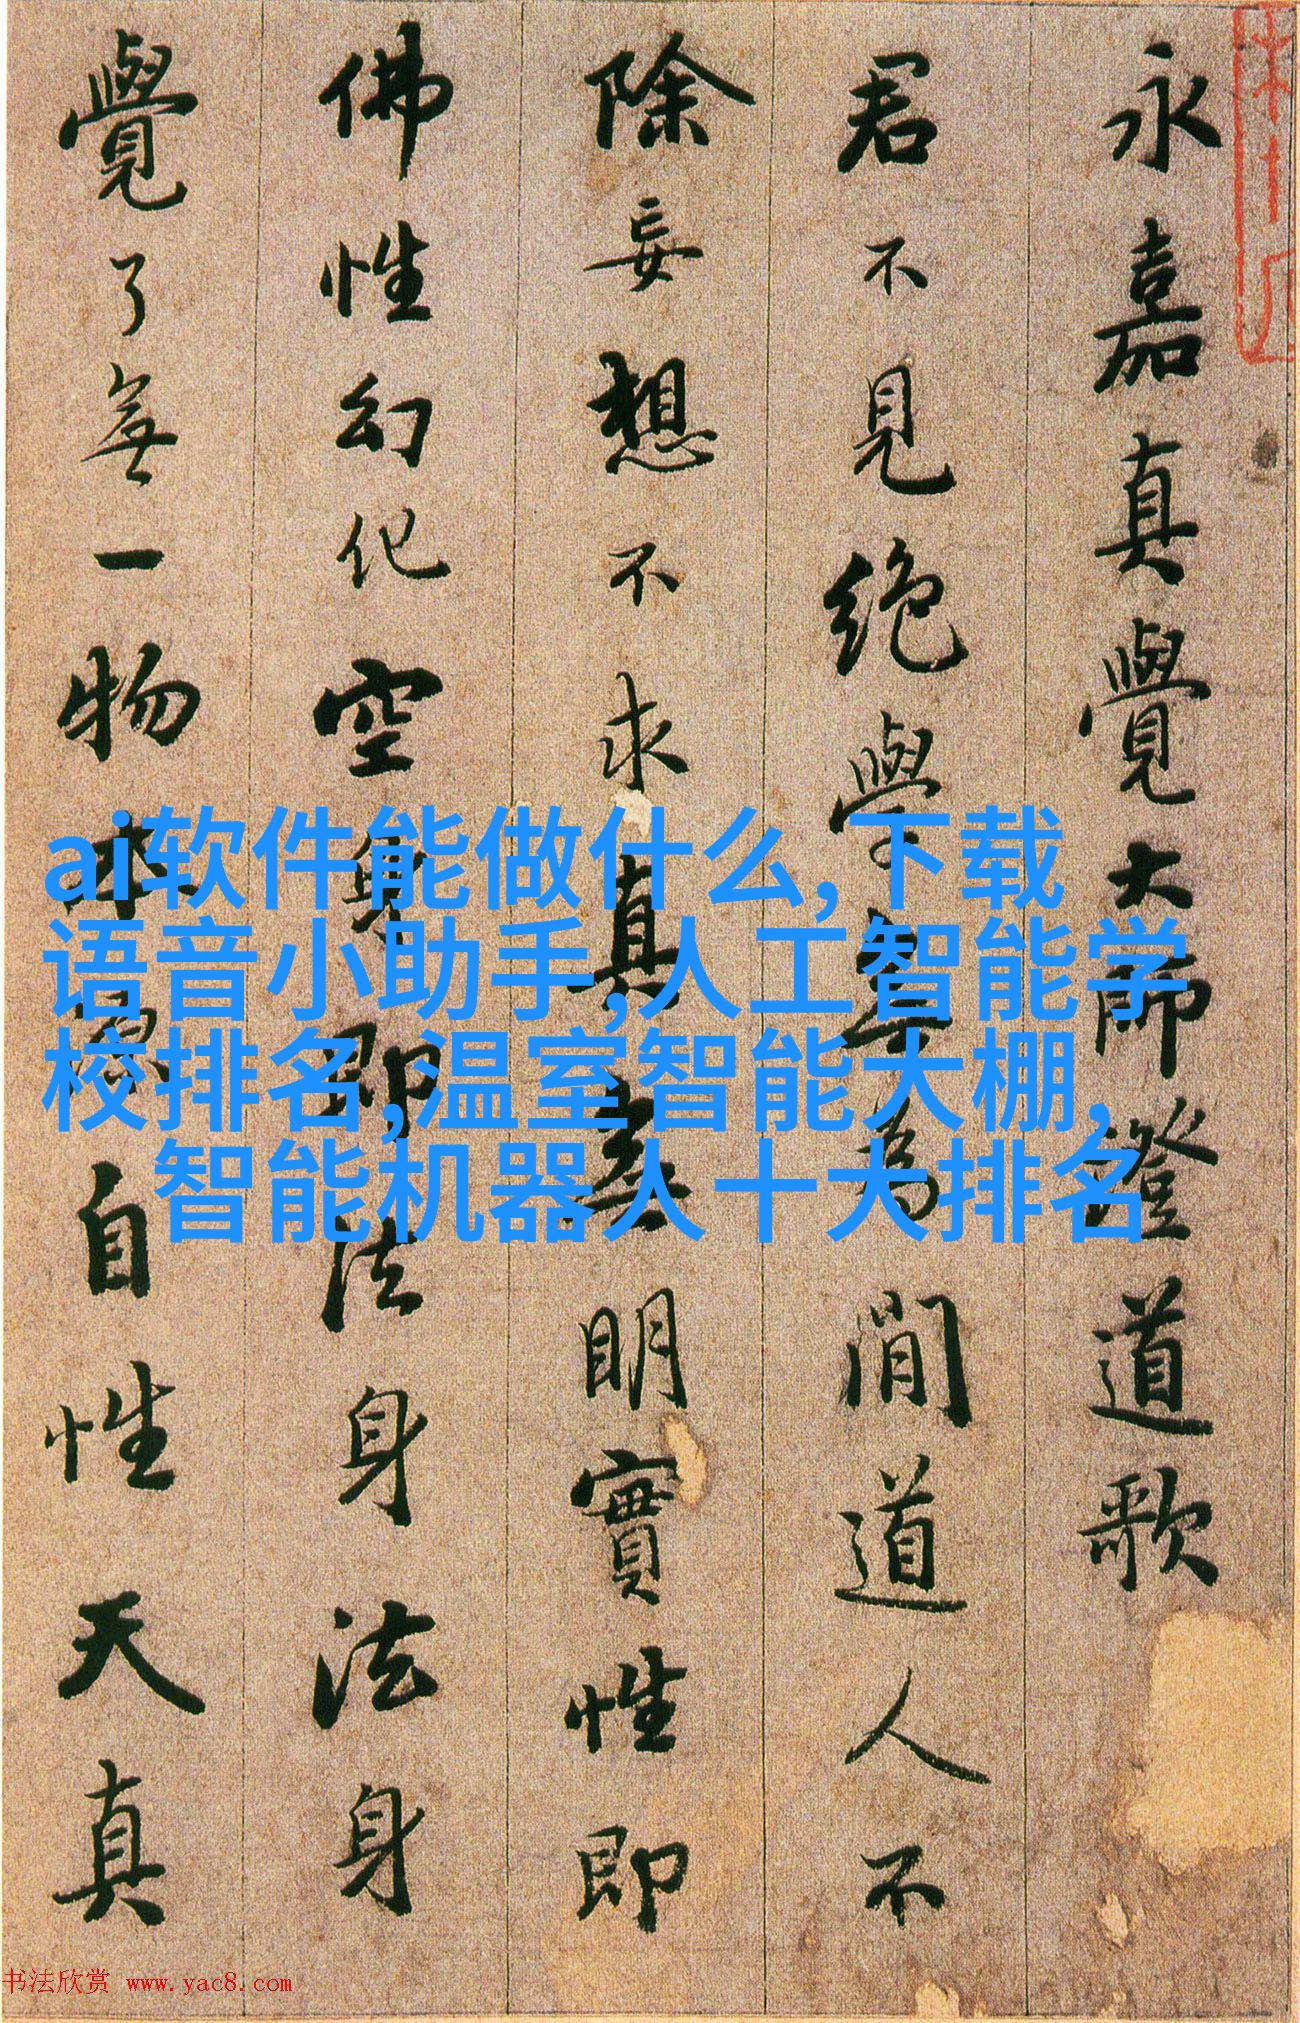 永嘉真覺大師證道歌
君不見絕學無為閒道人不
除妄想不求真無明實性即
佛性幻化空身即法身法身
覺了無一物本源自性天真
ai软件能做什么,下载
语音小助手,人工智能学
校排名,温室智能大棚,
智能机器人十大排名
书法欣赏 www.yac8.com